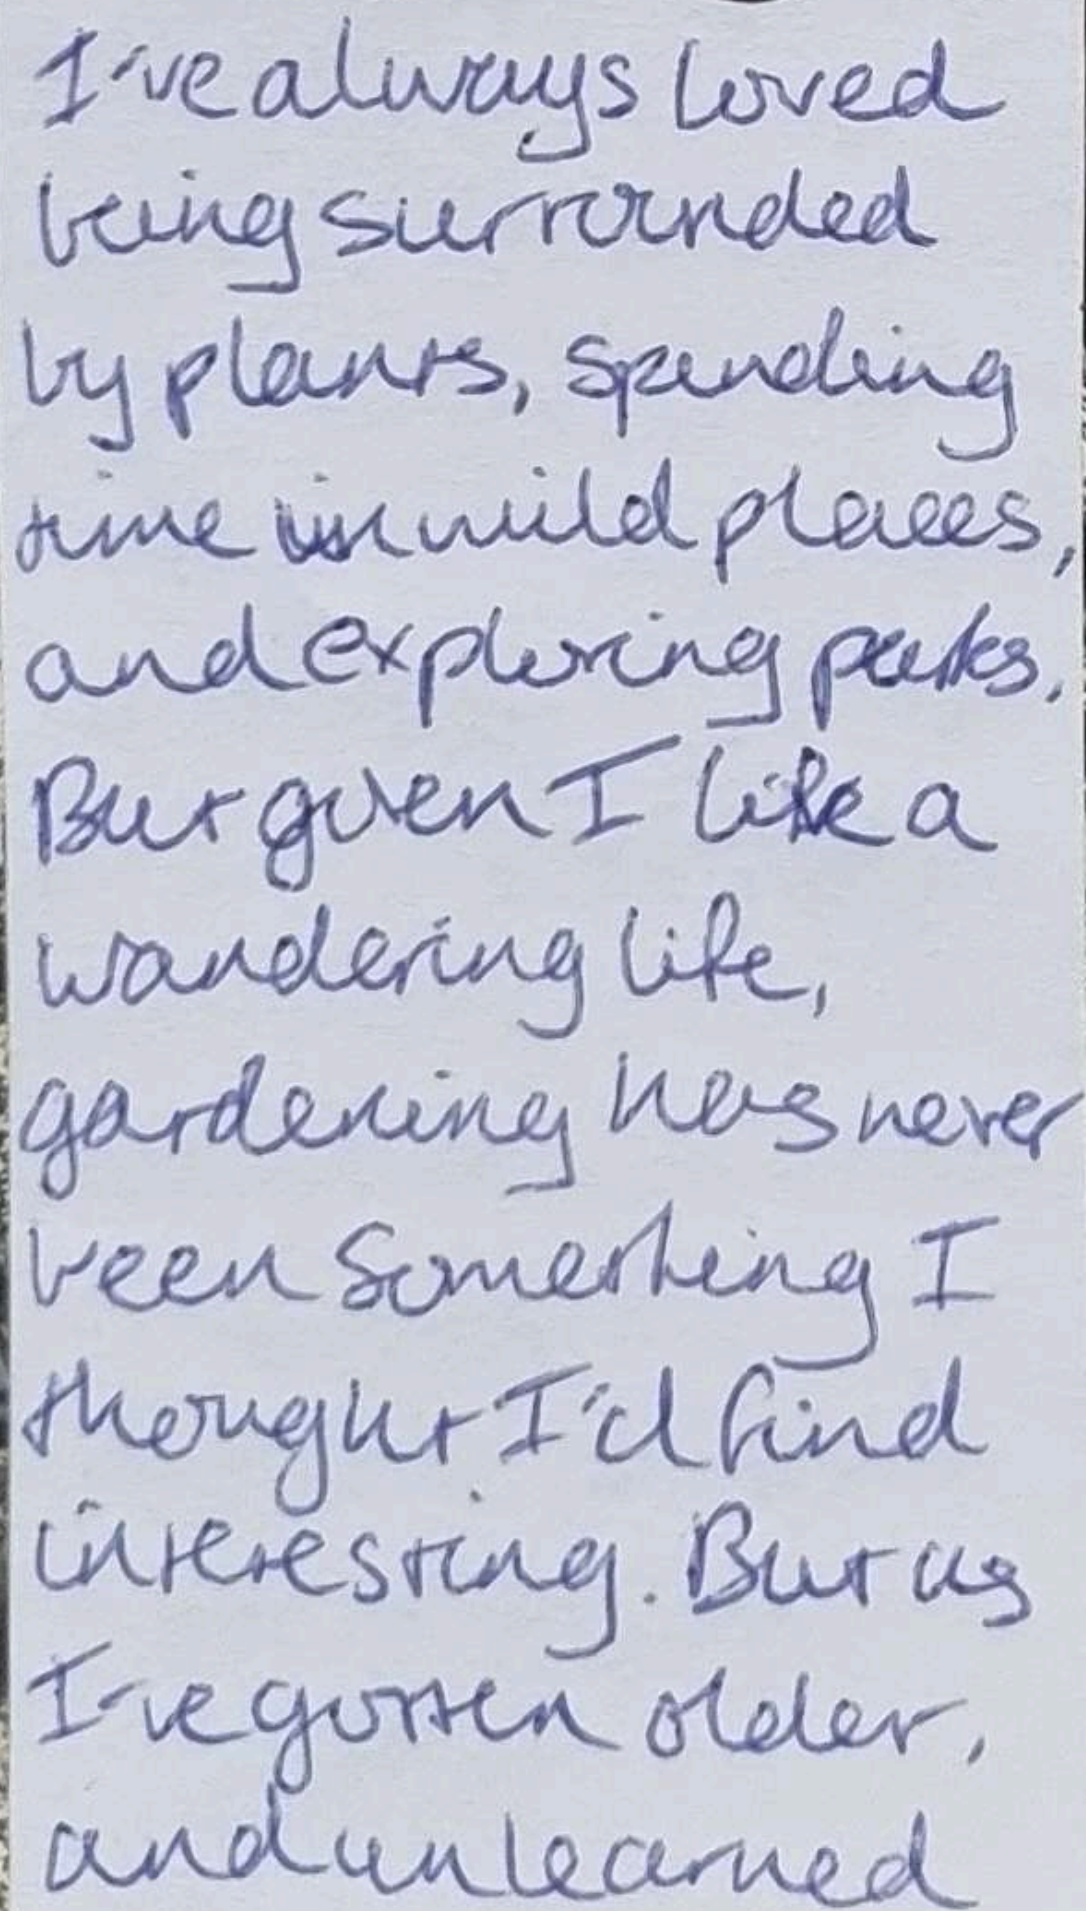 I've always loved
being surrounded
by plants, spending
time in wild places,
and exploring parks.
But given I like a
wandering life,
gardening has never
been something I
thought I'd find
interesting. But as
I've gotten older,
and unlearned